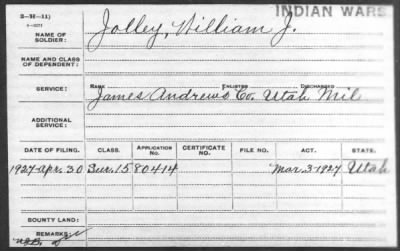 INDIAN WARS
3-H-11)
NAME OF SOLDIER: Jolley, William J.
NAME AND CLASS OF DEPENDENT:
SERVICE: RANK ENLISTED DISCHARGED
James Andrews Co. Utah Mil
ADDITIONAL SERVICE:
DATE OF FILING. CLASS. APPLICATION No. CERTIFICATE No. FILE NO. ACT. STATE.
1927-Apr. 30 Sur. 1580414 Mar. 3-1927 Utah
BOUNTY LAND:
REMARKS: